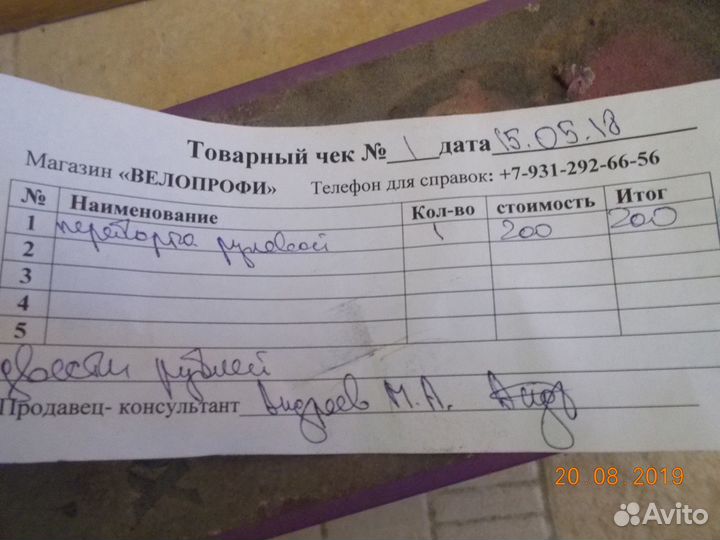 Товарный чек № 1 дата 15.05.18
Магазин «ВЕЛОПРОФИ» Телефон для справок: +7-931-292-66-56
№ Наименование Кол-во стоимость Итог
1 переборка рулевой 1 200 200
2
3
4
5
двести рублей
Продавец- консультант Андреев М.А.
20 08 2019
Avito